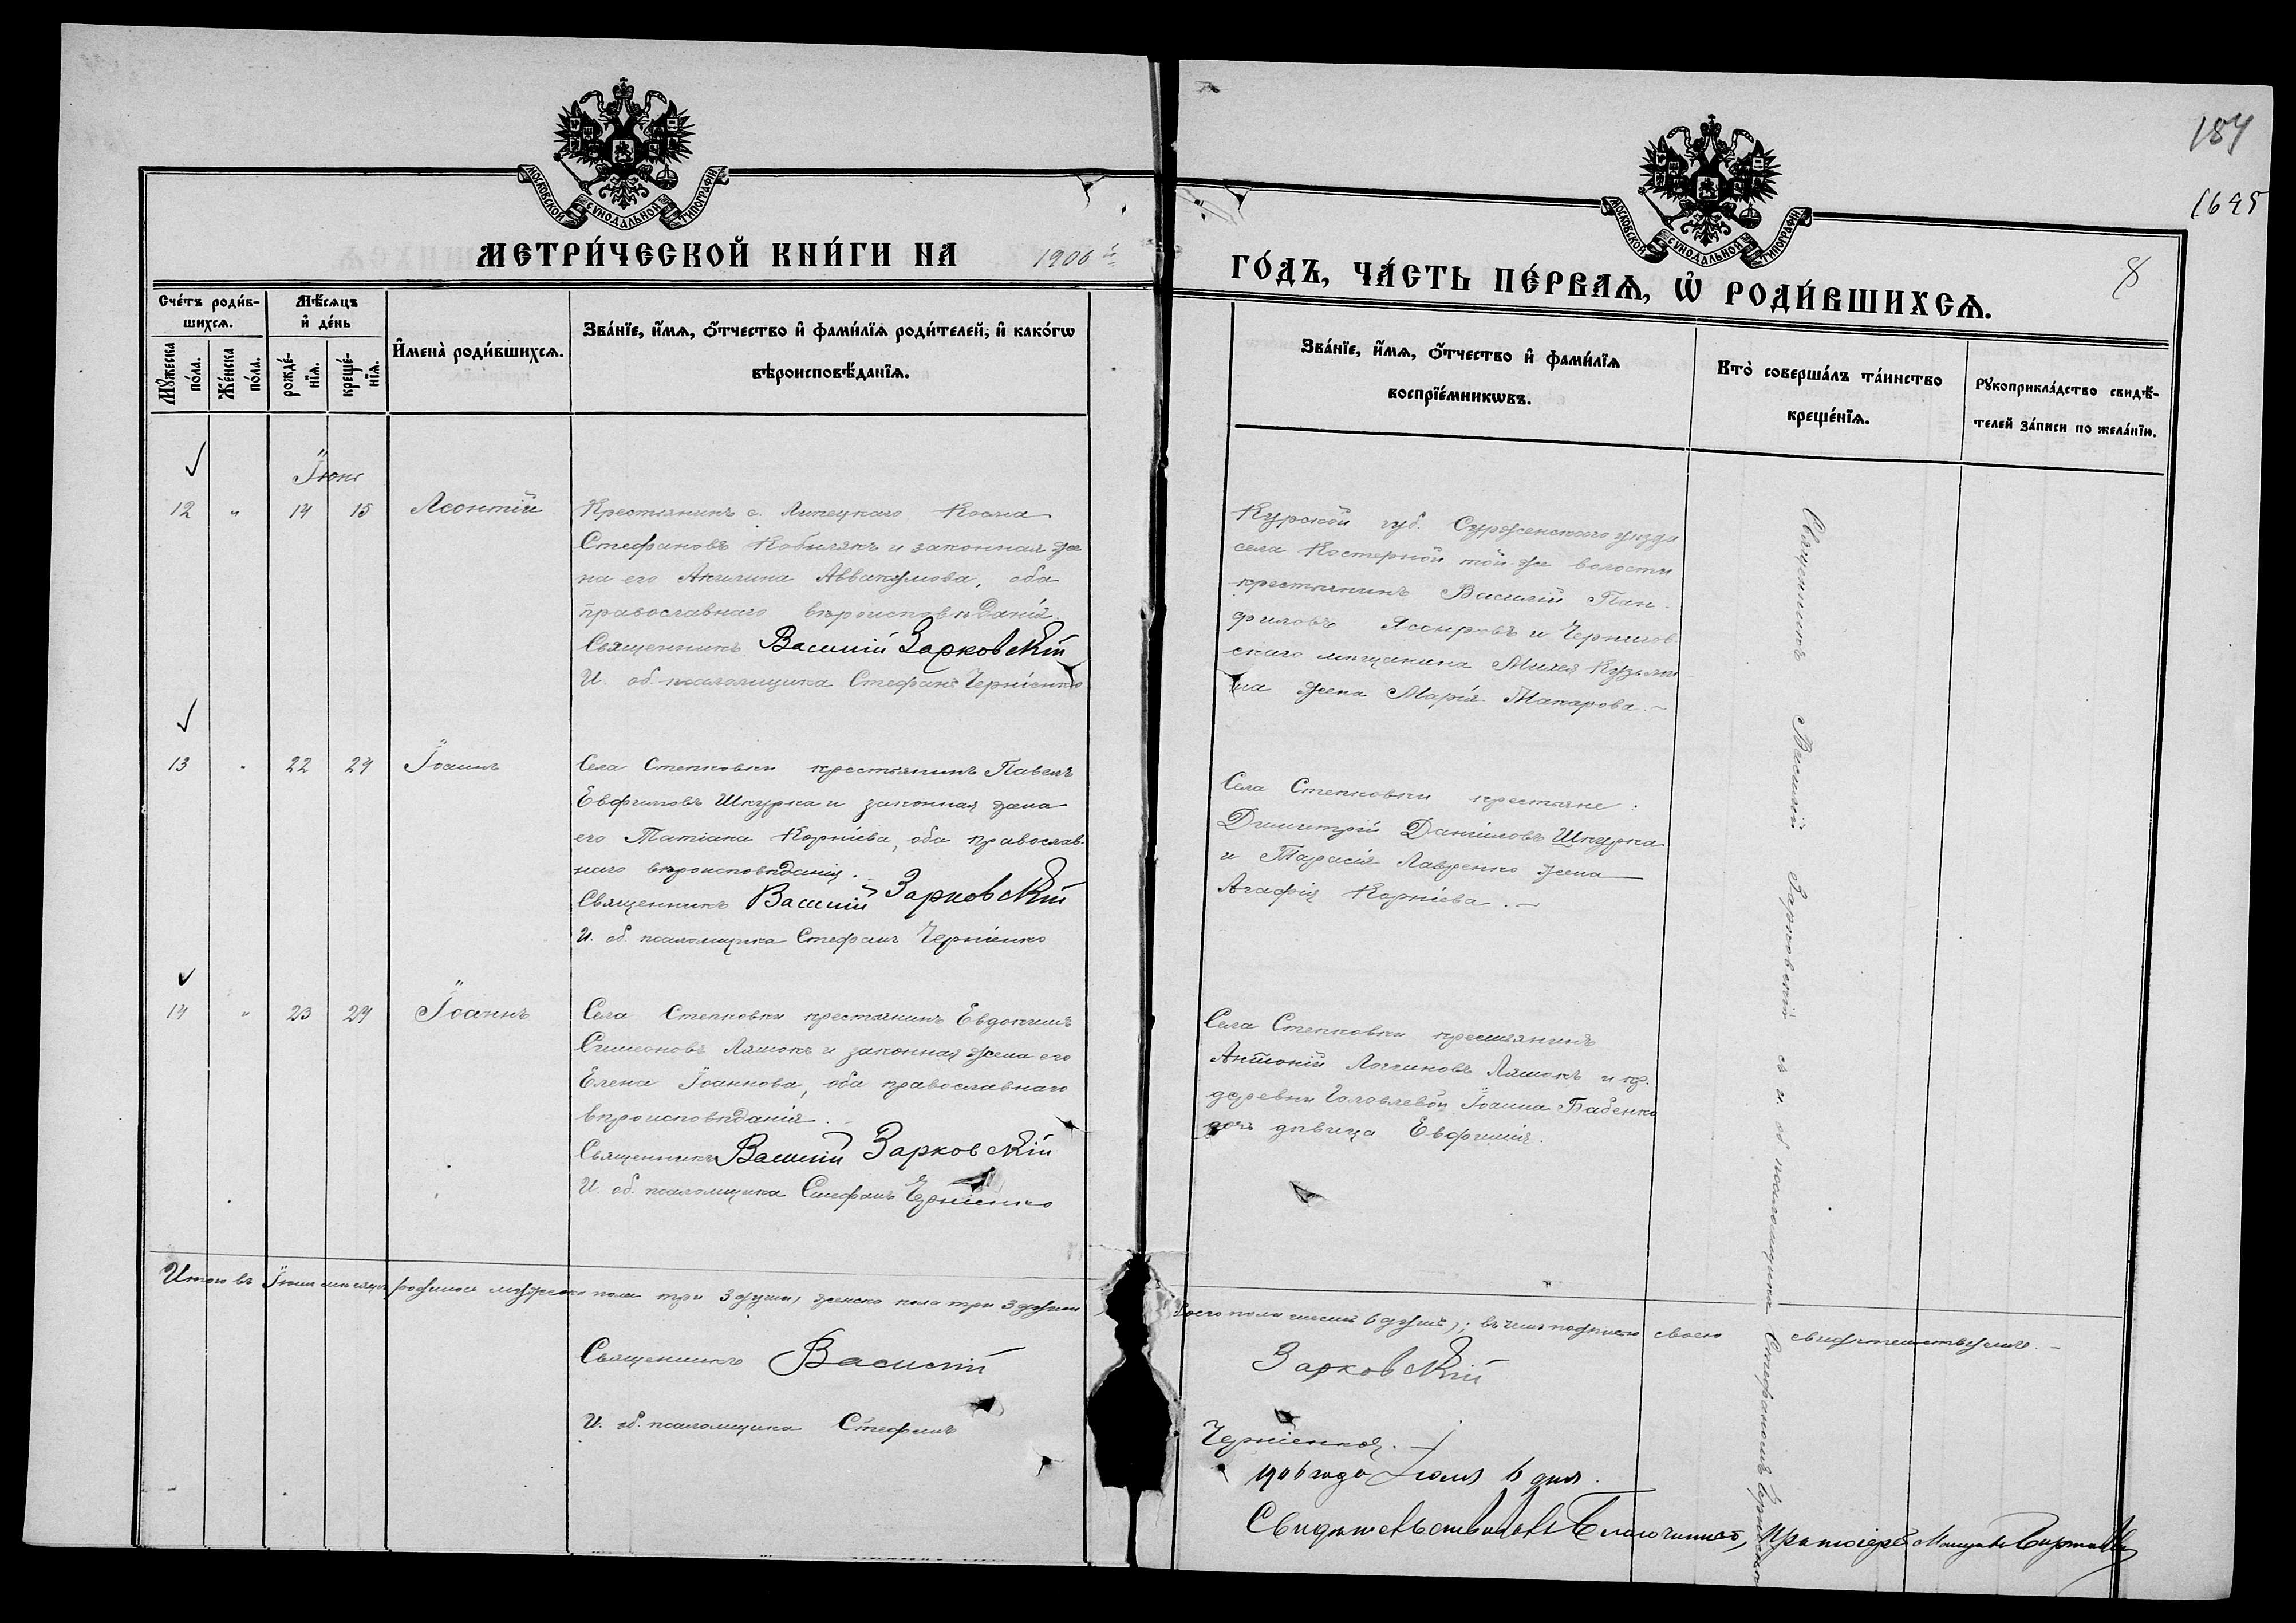 184
1645
8
МОСКОВСКОЙ СѴНОДАЛЬНОЙ ТИПОГРАФІИ
МОСКОВСКОЙ СѴНОДАЛЬНОЙ ТИПОГРАФІИ
МЕТРИ́ЧЕСКОЙ КНИ́ГИ НА 1906 й
ГО́ДЪ, ЧА́СТЬ ПЕ́РВАѦ, Ѡ҆ РОДИ́ВШИХСѦ.
Сче́тъ роди́в-
шихсѧ.
Мꙋ́жеска по́ла.
Же́нска по́ла.
Мѣ́сѧцъ
и҆ де́нь
рожде́-
нїѧ.
креще́-
нїѧ.
И҆мена̀ роди́вшихсѧ.
Зва́нїе, и҆́мѧ, ѻ҆́тчество и҆ фами́лїѧ роди́телей, и҆ како́гѡ
вѣроисповѣ́данїѧ.
Зва́нїе, и҆́мѧ, ѻ҆́тчество и҆ фами́лїѧ
воспрїе́мникѡвъ.
Кто̀ соверша́лъ та́инство
креще́нїѧ.
Рꙋкоприкла́дство свидѣ́-
телей за́писи по жела́нїю.
Іюнь
12 " 14 15 Леонтій
Крестьянинъ с. Липецкаго Косма
Стефановъ Кобылякъ и законная же
на его Акилина Аввакумова, оба
православнаго вѣроисповѣданія.
Священникъ Василій Зарковскій
И. об. псаломщика Стефанъ Черніенко
Курской губ. Судженскаго уѣзда
села Костерной той-же волости
крестьянинъ Василій Пан-
филовъ и Чернигов-
скаго мѣщанина Кузьми
на жена Марія Макарова. —
13 " 22 24 Іоаннъ
Села Степковки крестьянинъ Павелъ
Евфимовъ Шкурка и законная жена
его Татіана Корніева, оба православ-
наго вѣроисповѣданія.
Священникъ Василій Зарковскій
И. об. псаломщика Стефанъ Черніенко
Села Степковки крестьяне:
Димитрій Даниловъ Шкурка
и Тарасія Лавренко жена
Агафія Корніева. —
14 " 23 24 Іоаннъ
Села Степковки крестьянинъ Евдокимъ
Симеоновъ Ляшокъ и законная жена его
Елена Іоаннова, оба православнаго
вѣроисповѣданія.
Священникъ Василій Зарковскій
И. об. псаломщика Стефанъ Черніенко
Села Степковки крестьянинъ
Антоній Логгиновъ Ляшокъ и кр.
деревни Головлевой Іоанна Бабенко
дочь дѣвица Евфимія.
Священникъ Василій Зарковскій съ и об псаломщика Стефаномъ Черніенко
Итого въ Іюнѣ мѣсяцѣ родилось мужеска пола три 3 души, женска пола три 3 души
всего пола шесть 6 душъ); въ чемъ подписью своею свидѣтельствуемъ. —
Священникъ Василій Зарковскій
И. об. псаломщика Стефанъ Черніенко.
1906 года Іюля 6 дня.
Свидѣтельствовалъ Благочинный, Протоіерей